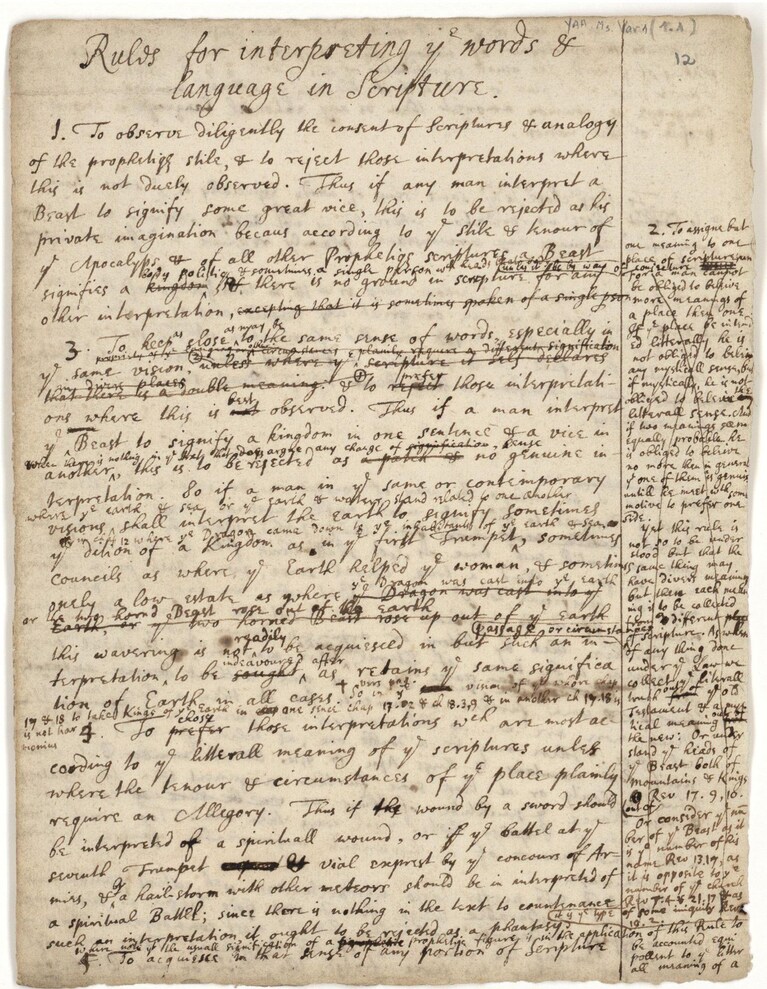 Yah. Ms. Var. 1 (1.1)
12
Rules for interpreting ye words &
language in Scripture.
1. To observe diligently the consent of Scriptures & analogy
of the prophetiqs stile, & to reject those interpretations where
this is not duely observed. Thus if any man interpret a
Beast to signify some great vice, this is to be rejected as his
private imagination becaus according to ye stile & tenour of
ye Apocalyps & of all other Prophetiqs scriptures a Beast
body politiq & sometimes a single person wch heads
signifies a kingdom & there is no ground in scripture for any
other interpretation, excepting that it is sometimes spoken of a single person
as may be
3. To keep as close to the same sense of words especially in
ye same vision, unless where ye scripture it self declares
that there is a double meaning. & to prefer those interpretati-
best
ons where this is not observed. Thus if a man interpret
ye Beast to signify a kingdom in one sentence & a vice in
when there is nothing in ye text that does argue any change of signification, sense
another, this is to be rejected as a patch & no genuine in-
terpretation. So if a man in ye same or contemporary
where ye earth & sea, or ye earth & waters stand related to one another
visions shall interpret the earth to signify sometimes
ye dition of a Kingdom. as in ye first Trumpet, sometimes
Councils as where ye Earth helped ye woman, & sometimes
onely a low estate as where ye Dragon was cast into ye
or the two hornd Beast rose out of the Earth
Earth, or ye two horned Beast rose up out of ye Earth
readily
this wavering is not to be acquiesced in but such an in-
indeavoured after
terpretation to be sought as retains ye same significa
tion of Earth in all cases.
4. To choose those interpretations wch are most ac-
cording to ye litterall meaning of ye scriptures unles
where the tenour & circumstances of ye place plainly
require an Allegory. Thus if the wound by a sword should
be interpreted of a spirituall wound, or if ye battel at ye
seventh Trumpet & vial exprest by ye concours of Ar-
mies, & a hail-storm with other meteors should be interpreted of
a spiritual Battel; since there is nothing in the text to countenance
such an interpretation, it ought to be rejected as a phantasy.
5. To acquiesce in that sense of any portion of Scripture
2. To assigne but
one meaning to one
place of scripture
For a man cannot
be obliged to beleive
more meanings of
a place then one.
If ye place be intend
ed litterally he is
not obliged to beleive
any mysticall sense, but
if mystically, he is not
obliged to beleive the
litterall sense. And
if two meanings seem
equally probable he
is obliged to beleive
no more then in general
ye one of them is genuine
untill he meet with some
motive to prefer one
side.
Yet this rule is
not so to be under
stood but that the
same thing may
have divers meanings
but then each mean
ing is to be collected
from different places
of scripture. As when
of any thing done
under ye Law we
collect ye litterall
truth out of ye old
Testament & a
tical meaning from
the new: Or under
stand ye heads of
ye Beast both of
Mountains & Kings
Rev 17. 9, 10.
Or consider ye num
ber of ye Beast as it
is ye number of his
name Rev 13.17, as
it is opposite to ye
number of ye church
of some iniquity
of this Rule to
be accounted equi
pollent to ye litter
all meaning of a